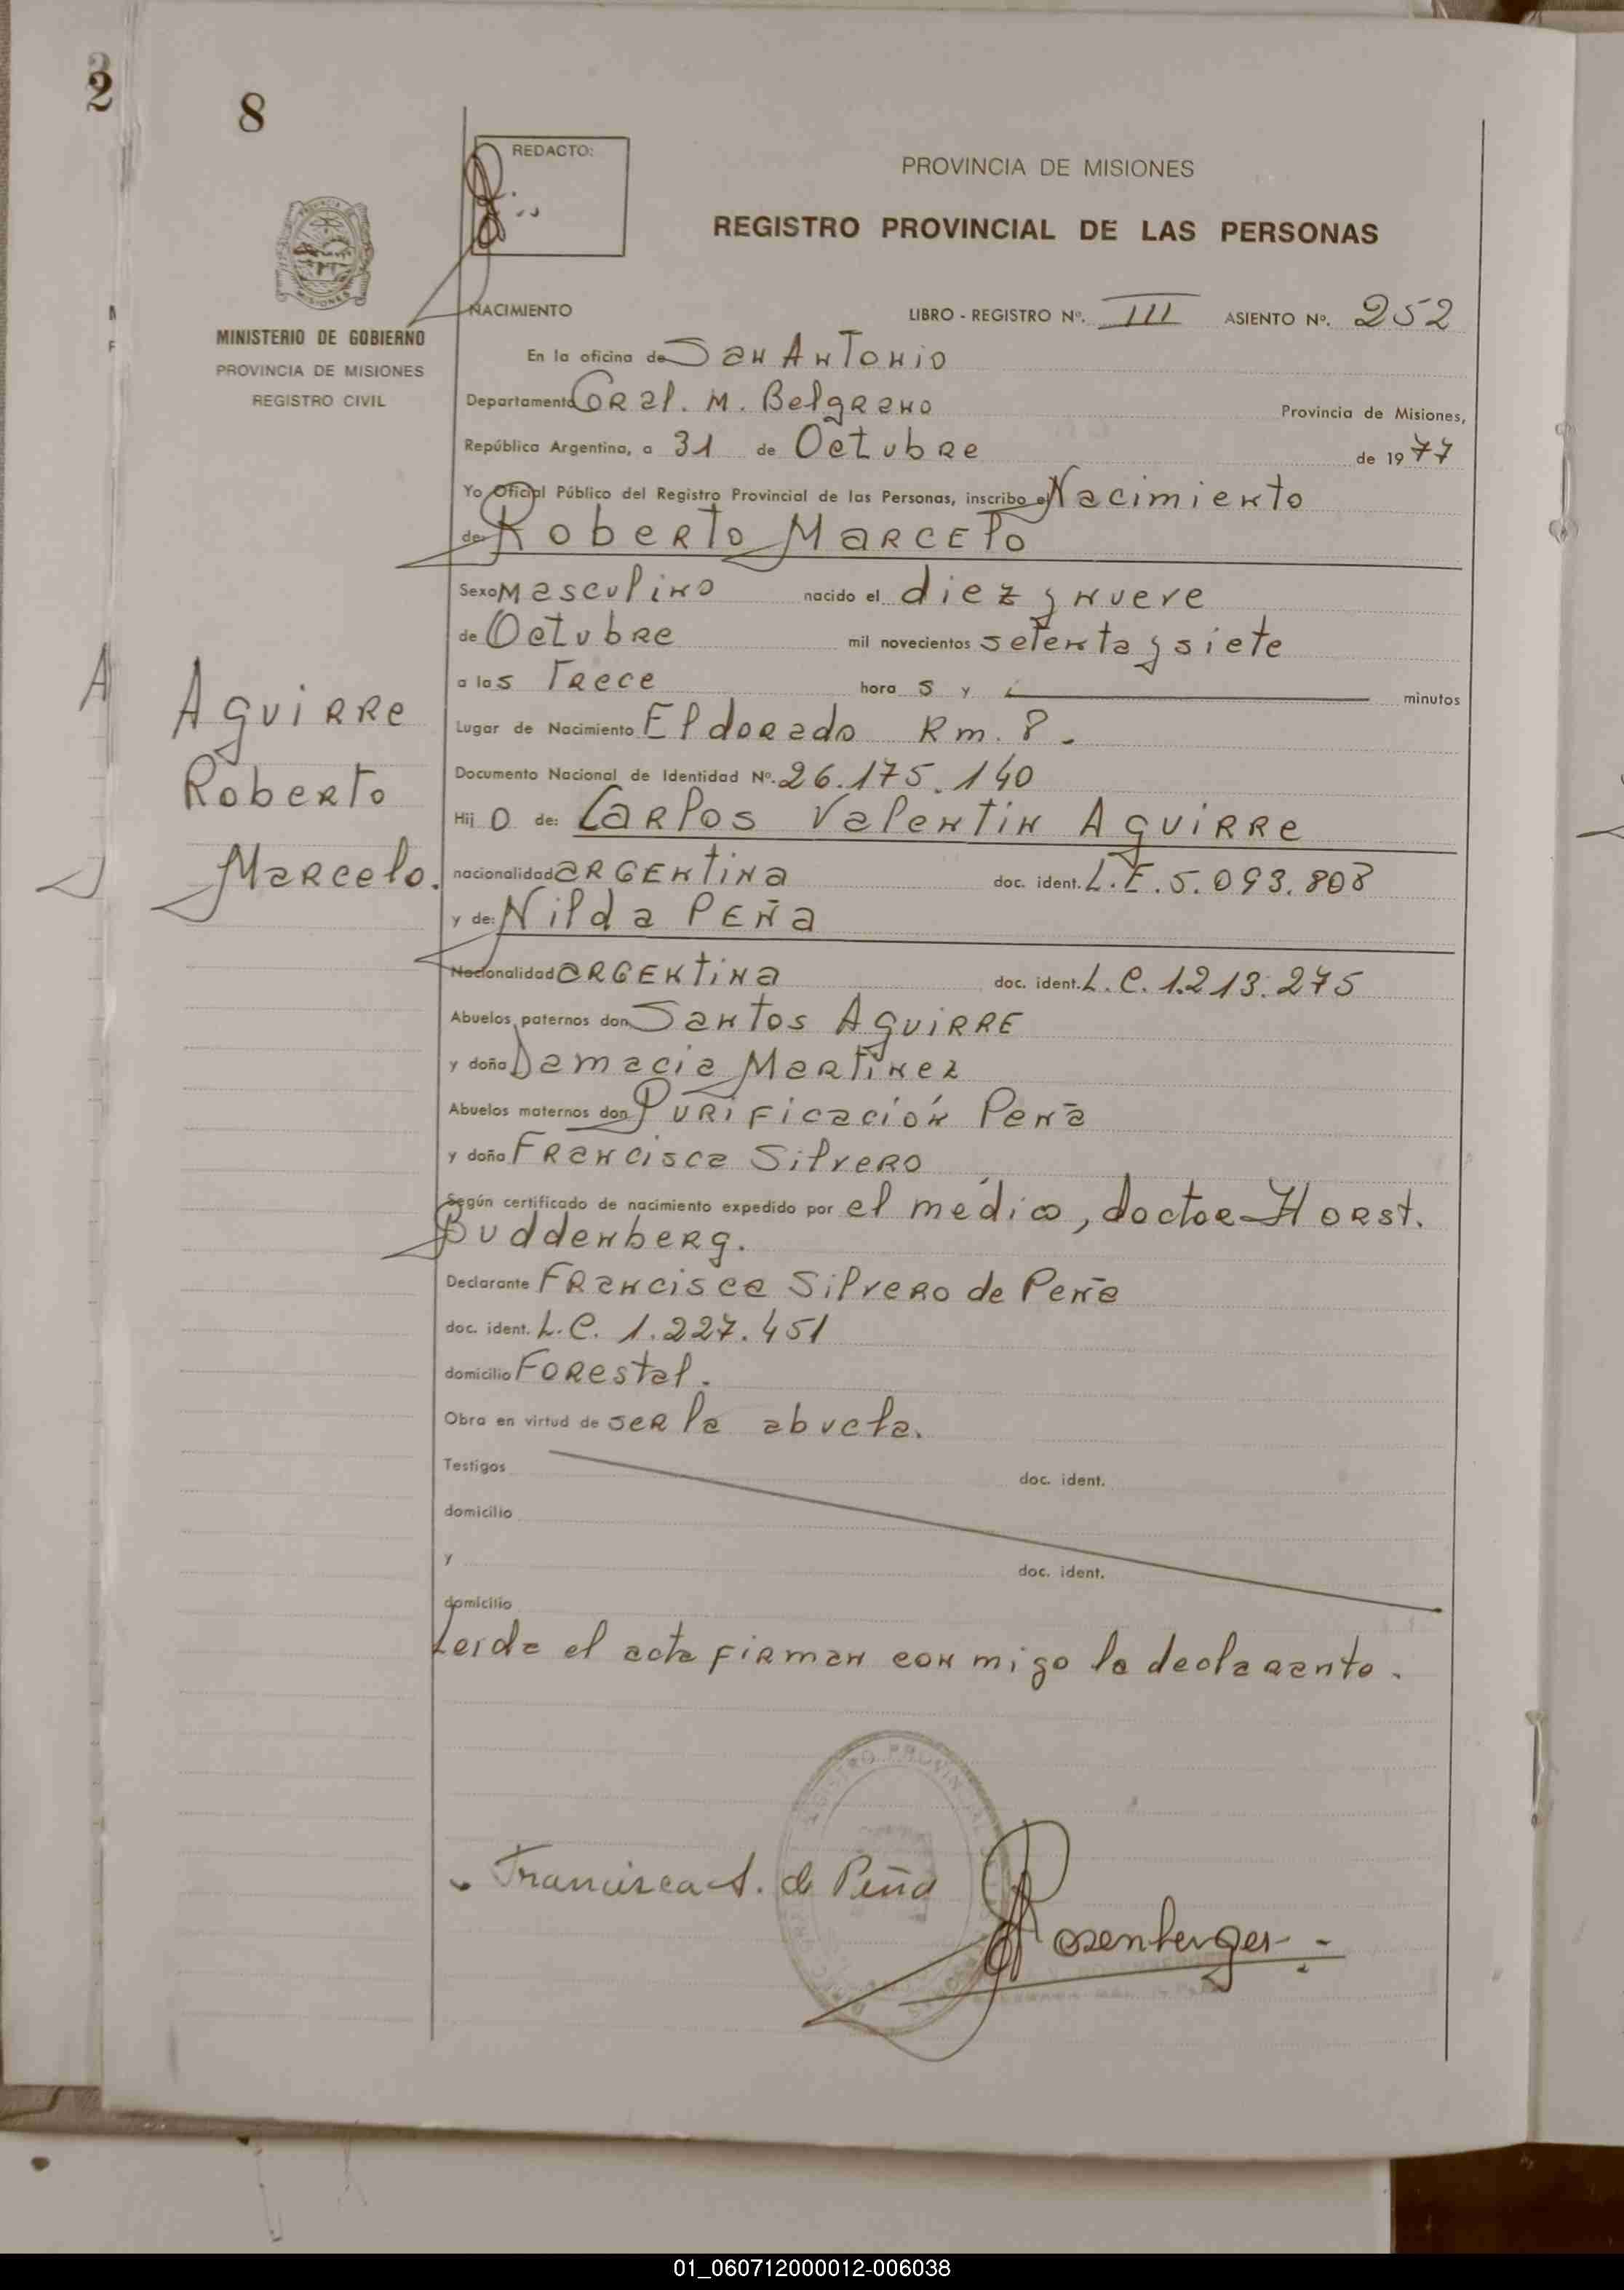 2
8
REDACTO:
PROVINCIA DE MISIONES
REGISTRO PROVINCIAL DE LAS PERSONAS
MINISTERIO DE GOBIERNO
PROVINCIA DE MISIONES
REGISTRO CIVIL
NACIMIENTO LIBRO - REGISTRO Nº. III ASIENTO Nº. 252
En la oficina de San Antonio
Departamento Gral. M. Belgrano Provincia de Misiones,
República Argentina, a 31 de Octubre de 1977
Yo Oficial Público del Registro Provincial de las Personas, inscribo el Nacimiento
de: Roberto Marcelo
Sexo Masculino nacido el diez y nueve
de Octubre mil novecientos setenta y siete
a las Trece hora s y minutos
Aguirre
Roberto
Marcelo.
Lugar de Nacimiento Eldorado Km. 8.
Documento Nacional de Identidad Nº. 26.175.140
Hij o de: Carlos Valentin Aguirre
nacionalidad argentina doc. ident. L.E. 5.093.808
y de: Nilda Peña
Nacionalidad argentina doc. ident. L.C. 1.213.275
Abuelos paternos don Santos Aguirre
y doña Damacia Martinez
Abuelos maternos don Purificación Peña
y doña Francisca Silvero
Según certificado de nacimiento expedido por el médico, doctor Horst.
Buddenberg.
Declarante Francisca Silvero de Peña
doc. ident. L.C. 1.227.451
domicilio Forestal.
Obra en virtud de ser la abuela.
Testigos doc. ident.
domicilio
y doc. ident.
domicilio
Leida el acta firman conmigo la declarante.
Francisca S. de Peña
Rosenberger
01_060712000012-006038